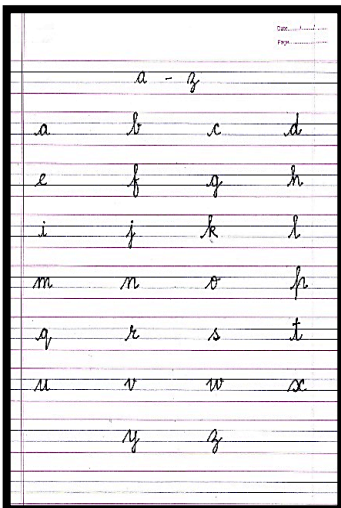 Date....../....../......
Page..................
a - z
a b c d
e f g h
i j k l
m n o p
q r s t
u v w x
y z